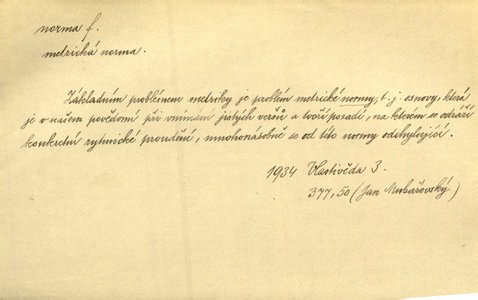 norma f.
metrická norma.
Základním problémem metriky je problém metrické normy, t. j. osnovy, která
je v našem povědomí při vnímání jistých veršů a tvoří pozadí, na kterém se odráží
konkretní rytmické proudění, mnohonásobně se od této normy odchylující.
1934 Vlastivěda 3.
377,50 (Jan Mukařovský)